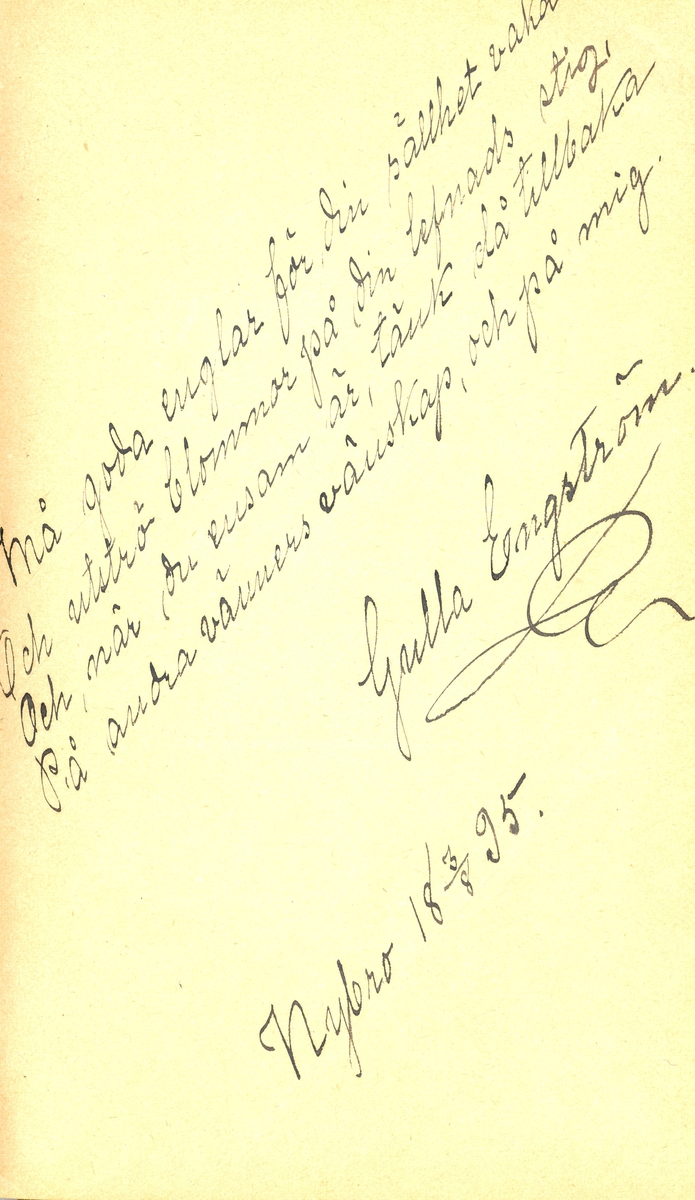 Må goda englar för din sällhet vaka
Och utströ blommor på din lefnads stig,
Och, när du ensam är, tänk då tillbaka
På andra vänners vänskap, och på mig.
Gulla Engström.
Nybro 18 3/8 95.